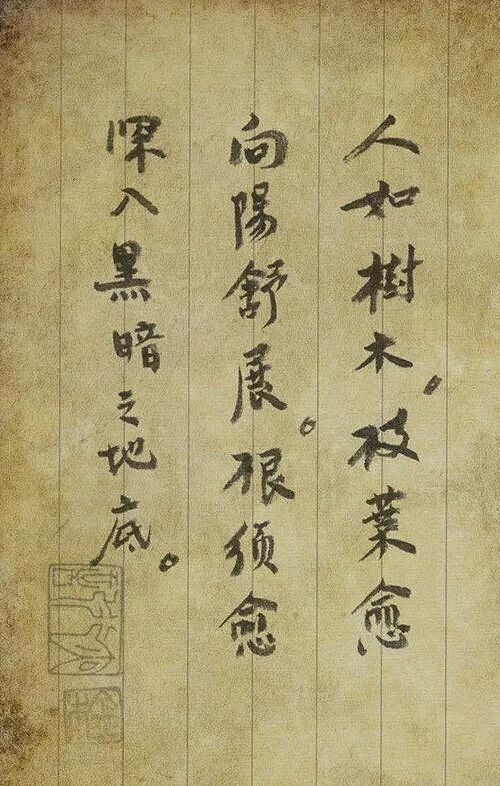 人如樹木，枝葉愈
向陽舒展。根须愈
深入黑暗之地底。